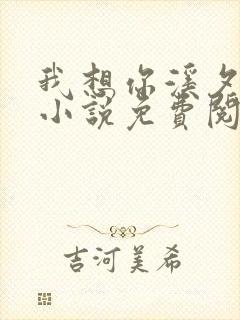 我想你溪夕
小说免費閱
吉河美希